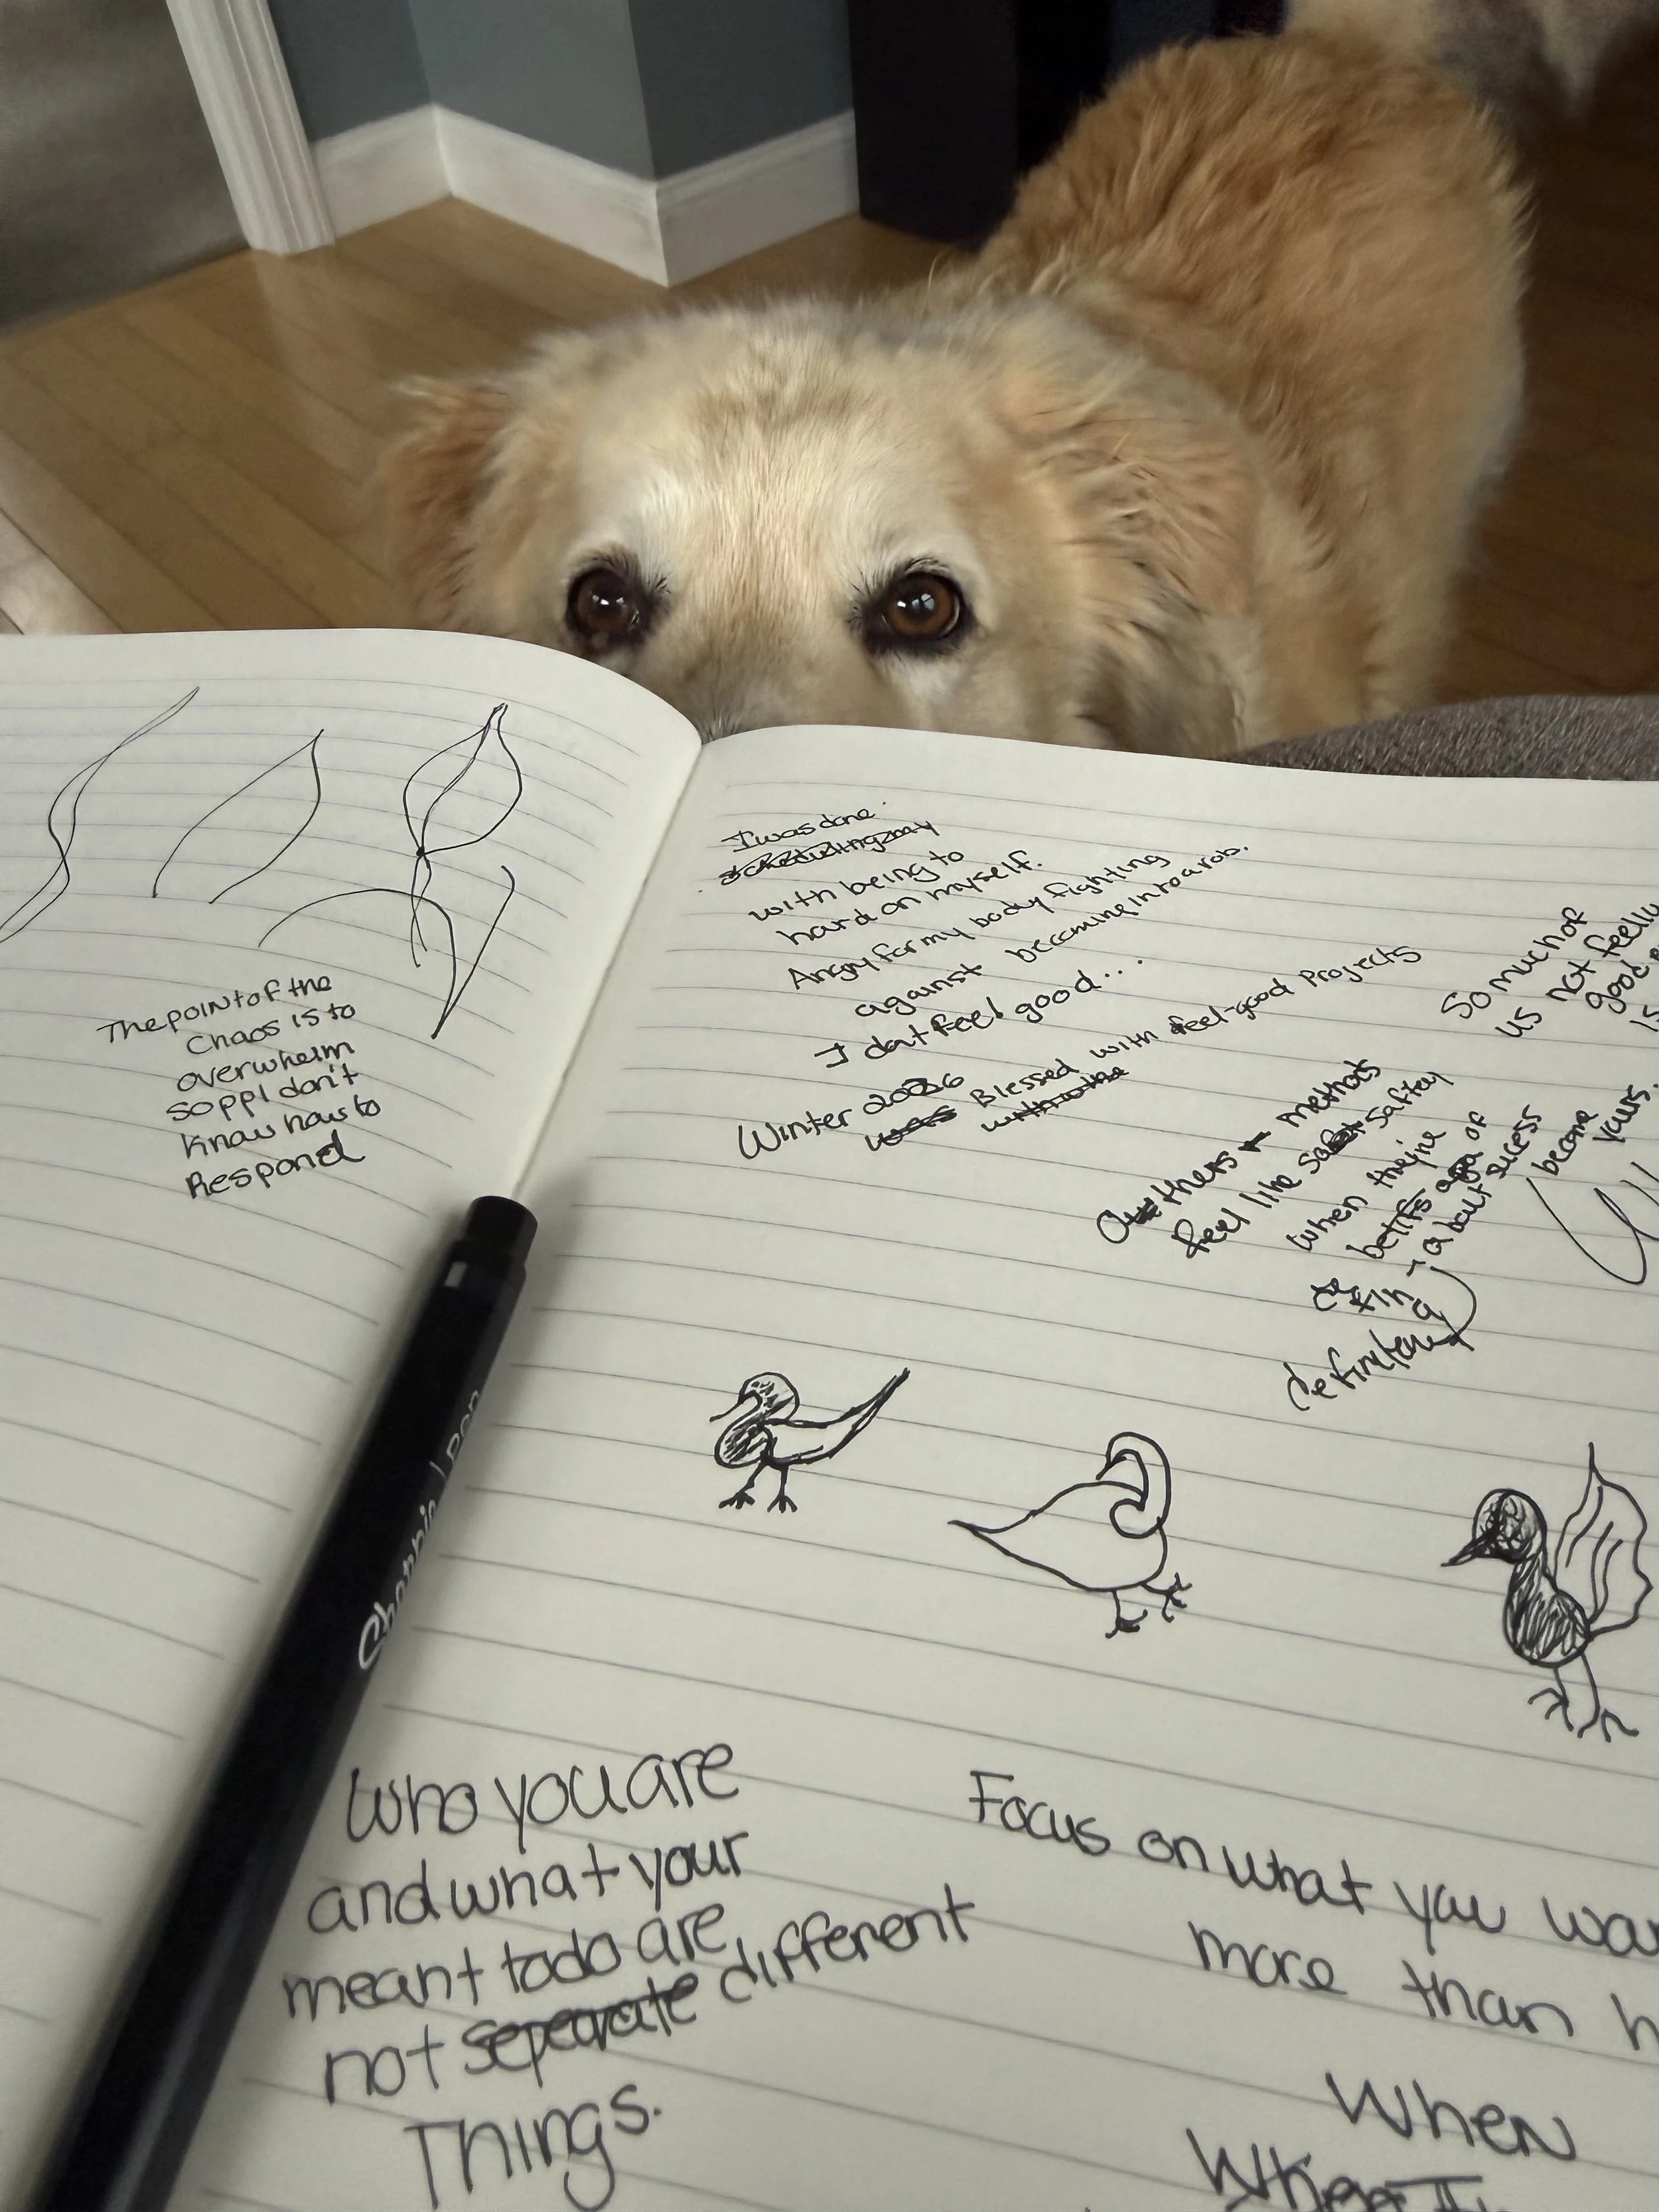 The point of the
Chaos is to
overwhelm
so ppl don't
know how to
Respond
I was done
with being to
hard on myself.
Angry for my body fighting
against becoming into a rob.
I dont feel good...
Winter 2026
was Blessed with feel-good Projects
So much of
us not feelin
good e
is
Others methods
feel like saftey
when they're
belifs of
about sucess
become
yours.
defin
a
Sharpie | Pen
Who you are
and what your
meant to do are
not separate different
Things.
Focus on what you wa
more than h
When
When I